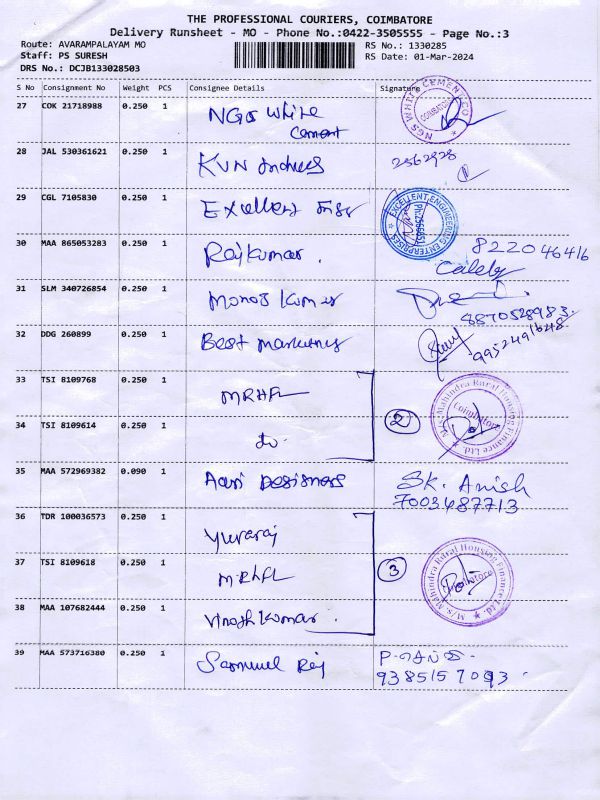 THE PROFESSIONAL COURIERS, COIMBATORE
Delivery Runsheet - MO - Phone No.:0422-3505555 - Page No.:3
Route: AVARAMPALAYAM MO
RS No.: 1330285
Staff: PS SURESH
RS Date: 01-Mar-2024
DRS No.: DCJB133028503
S No Consignment No Weight PCS Consignee Details Signature
27 COK 21718988 0.250 1 NGS White
Cement
NGS WHITE CEMENT CO
COIMBATORE
28 JAL 530361621 0.250 1 KVN
2562828
29 CGL 7105830 0.250 1 Excellent
EXCELLENT ENGINEERING ENTERPRISES
30 MAA 865053283 0.250 1 Rajkumar.
822046416
31 SLM 340726854 0.250 1 Manoj Kumar
8870528983.
32 DDG 260899 0.250 1 Best
9952491648.
33 TSI 8109768 0.250 1 MRHFL
34 TSI 8109614 0.250 1 do.
2
M/s. Mahindra Rural Housing Finance Ltd.
Coimbatore
35 MAA 572969382 0.090 1 Aari Designers
SK. Anish
7003487713
36 TDR 100036573 0.250 1 Yuvaraj
37 TSI 8109618 0.250 1 MRHFL
3
M/s. Mahindra Rural Housing Finance Ltd.
Coimbatore
38 MAA 107682444 0.250 1 Vinothkumar.
39 MAA 573716380 0.250 1 Samuel Raj
9385157093.